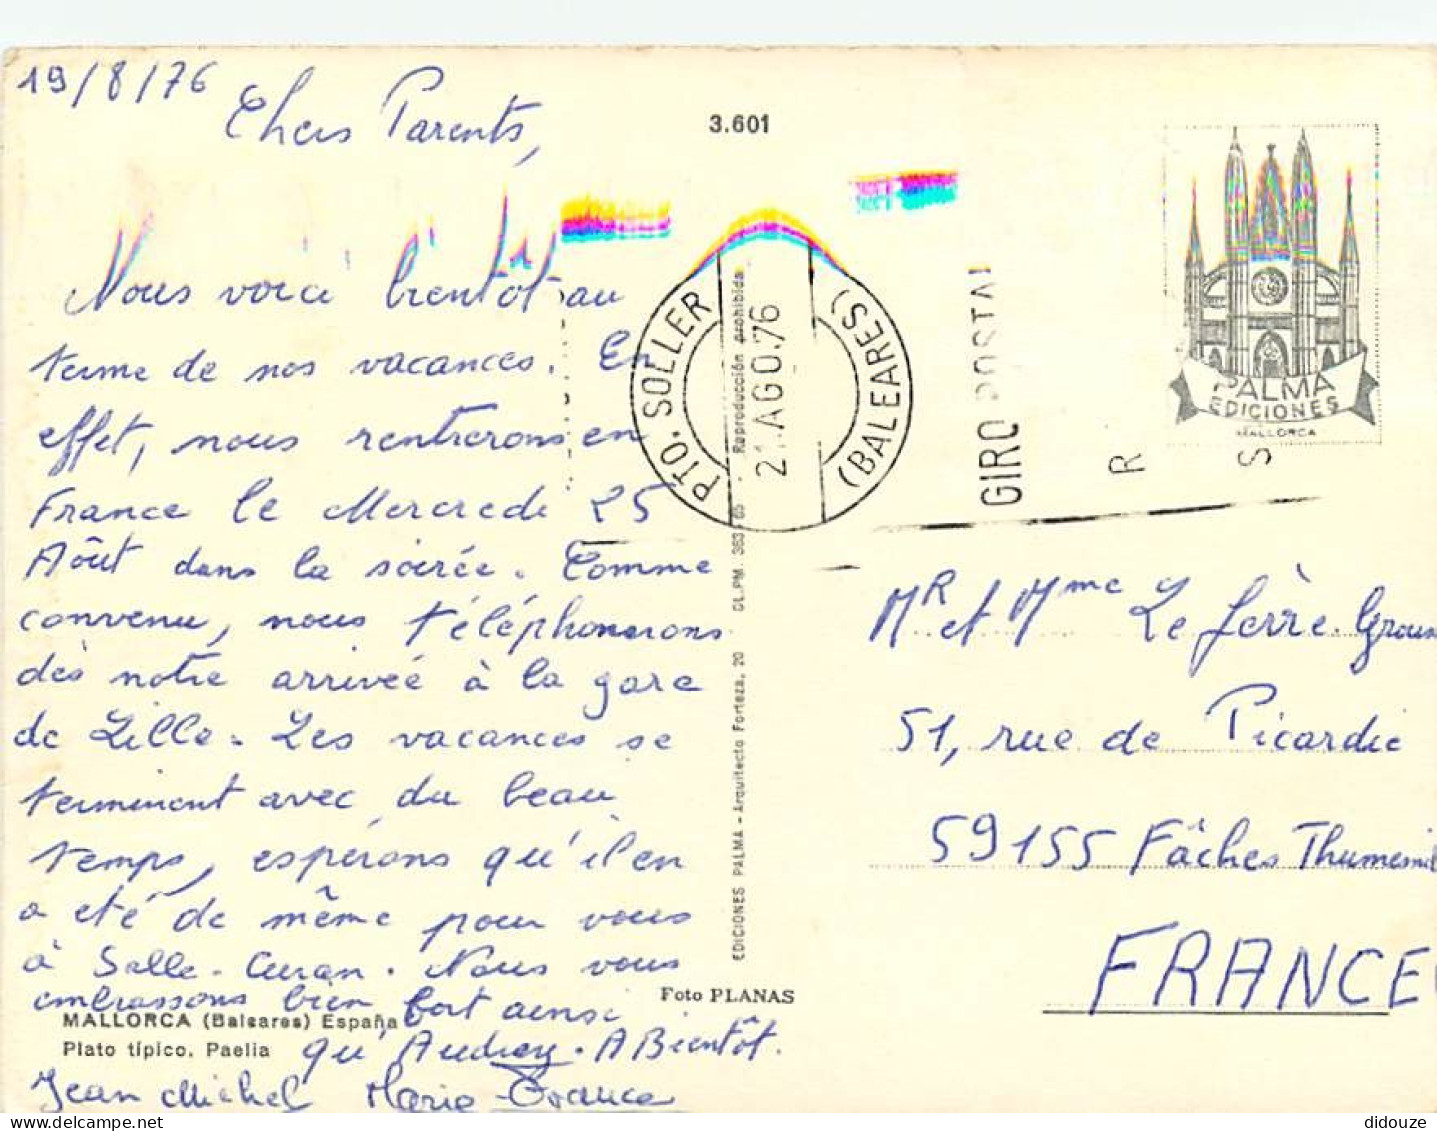 19/8/76
Chers Parents,
3.601
Nous voici bientôt au
terme de nos vacances. En
effet, nous rentrerons en
France le Mercredi 25
Août dans la soirée. Comme
convenu, nous téléphonerons
dès notre arrivée à la gare
de Lille. Les vacances se
terminent avec du beau
temps, espérons qu'il en
a été de même pour vous
à Salle-Curan. Nous vous
embrassons bien fort ainsi
qu'Audrey. A Bientôt.
Jean Michel Marie-France
MALLORCA (Baleares) España
Plato típico. Paella
Foto PLANAS
EDICIONES PALMA - Arquitecto Forteza, 20 DL.PM. 363 - 65 - Reproducción prohibida
PTO. SOLLER
(BALEARES)
21.AGO.76
GIRO POSTAL
R S
PALMA
EDICIONES
MALLORCA
MR et Mme Le ferre
51, rue de Picardie
59155 Fâches Thumesnil
FRANCE
didouze